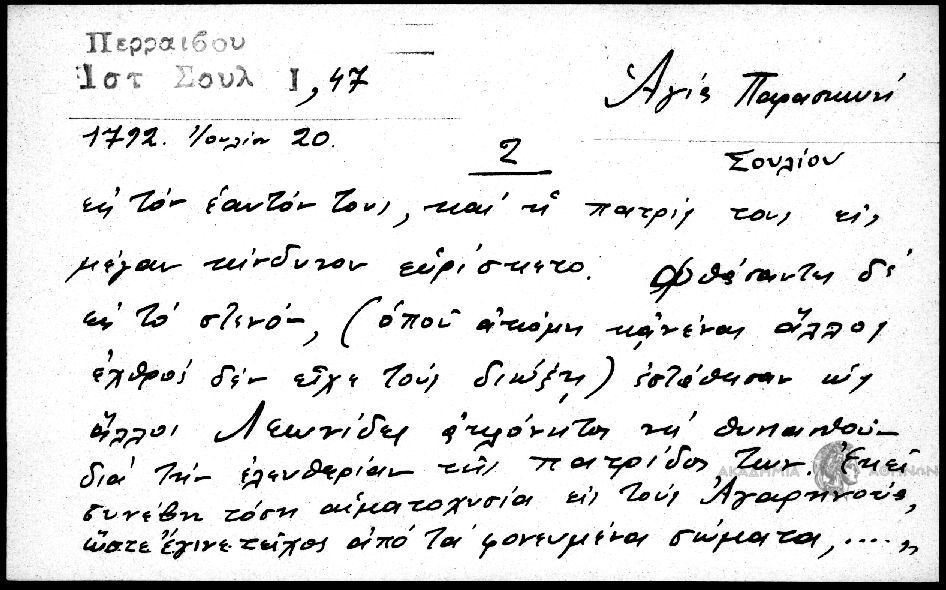 Περραιβου
Ιστ Σουλ Ι, 47
Ἁγία Παρασκευή
1792. Ἰουλίου 20.
2
Σουλίου
εἰς τόν ἑαυτόν τους, καί ἡ πατρίς τους εἰς
μέγαν κίνδυνον εὑρίσκετο. Φθάσαντες δέ
εἰς τό στενόν, (ὁποῦ ἀκόμη κἀνένας ἄλλος
ἐχθρός δέν εἶχε τούς διώξῃ) ἐστάθησαν ὡς
ἄλλοι Λεωνίδες νά θυσιασθοῦν
διά τήν ἐλευθερίαν τῆς πατρίδος των. Ἐκεῖ
συνέβη τόση αἱματοχυσία εἰς τούς Ἀγαρηνούς,
ὥστε ἔγινε τεῖχος ἀπό τά φονευμένα σώματα, ....,,
ΑΚΑΔΗΜΙΑ ΑΘΗΝΩΝ